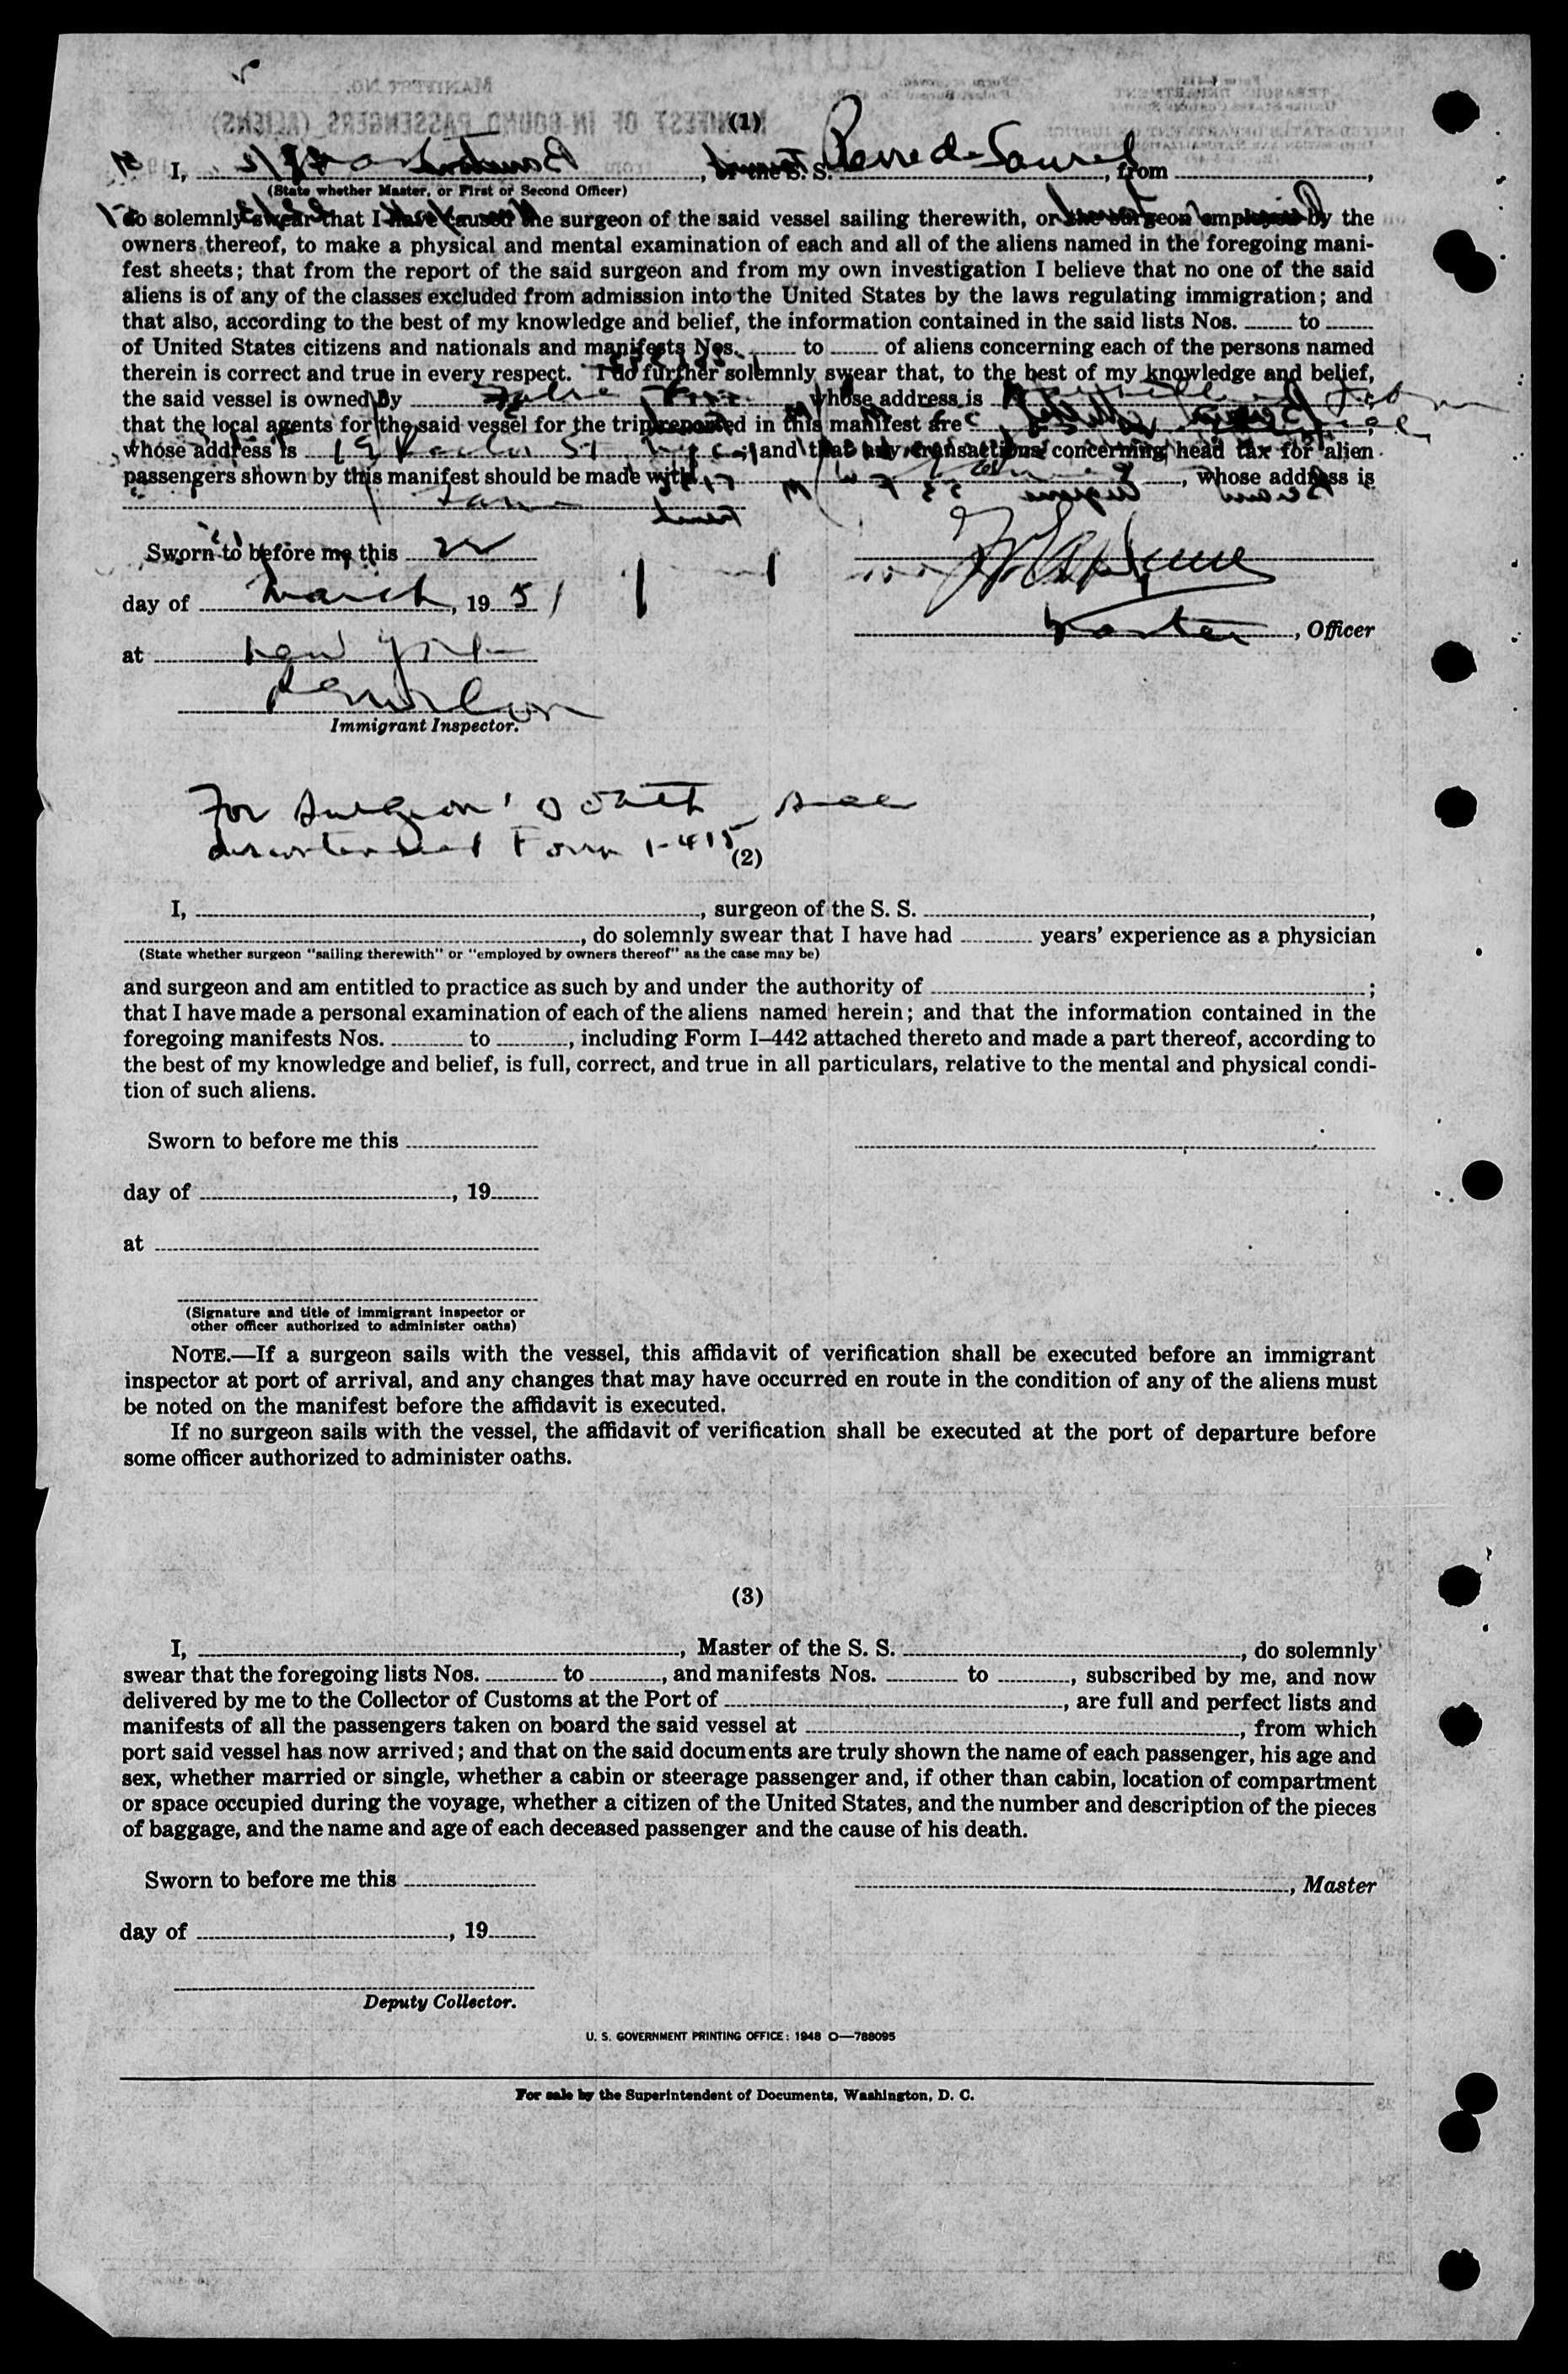 (1)
I, , of the S. S. Pierre de Saurel, from ,
(State whether Master, or First or Second Officer)
do solemnly swear that I have caused the surgeon of the said vessel sailing therewith, or the surgeon employed by the
owners thereof, to make a physical and mental examination of each and all of the aliens named in the foregoing mani-
fest sheets; that from the report of the said surgeon and from my own investigation I believe that no one of the said
aliens is of any of the classes excluded from admission into the United States by the laws regulating immigration; and
that also, according to the best of my knowledge and belief, the information contained in the said lists Nos. to
of United States citizens and nationals and manifests Nos. to of aliens concerning each of the persons named
therein is correct and true in every respect. I do further solemnly swear that, to the best of my knowledge and belief,
the said vessel is owned by whose address is
that the local agents for the said vessel for the trip reported in this manifest are
whose address is 19 St ; and that any transactions concerning head tax for alien
passengers shown by this manifest should be made with , whose address is
Same
Sworn to before me this 22
day of March, 1951
Master, Officer
at New York
Immigrant Inspector.
For Surgeon's oath see
Form I-415
(2)
I, , surgeon of the S. S. ,
, do solemnly swear that I have had years' experience as a physician
(State whether surgeon "sailing therewith" or "employed by owners thereof" as the case may be)
and surgeon and am entitled to practice as such by and under the authority of ;
that I have made a personal examination of each of the aliens named herein; and that the information contained in the
foregoing manifests Nos. to , including Form I-442 attached thereto and made a part thereof, according to
the best of my knowledge and belief, is full, correct, and true in all particulars, relative to the mental and physical condi-
tion of such aliens.
Sworn to before me this
day of , 19
at
(Signature and title of immigrant inspector or
other officer authorized to administer oaths)
NOTE.—If a surgeon sails with the vessel, this affidavit of verification shall be executed before an immigrant
inspector at port of arrival, and any changes that may have occurred en route in the condition of any of the aliens must
be noted on the manifest before the affidavit is executed.
If no surgeon sails with the vessel, the affidavit of verification shall be executed at the port of departure before
some officer authorized to administer oaths.
(3)
I, , Master of the S. S. , do solemnly
swear that the foregoing lists Nos. to , and manifests Nos. to , subscribed by me, and now
delivered by me to the Collector of Customs at the Port of , are full and perfect lists and
manifests of all the passengers taken on board the said vessel at , from which
port said vessel has now arrived; and that on the said documents are truly shown the name of each passenger, his age and
sex, whether married or single, whether a cabin or steerage passenger and, if other than cabin, location of compartment
or space occupied during the voyage, whether a citizen of the United States, and the number and description of the pieces
of baggage, and the name and age of each deceased passenger and the cause of his death.
Sworn to before me this
, Master
day of , 19
Deputy Collector.
U. S. GOVERNMENT PRINTING OFFICE: 1948 O—788095
For sale by the Superintendent of Documents, Washington, D. C.